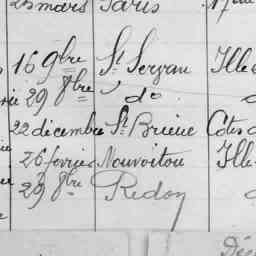 23 mars Paris 17
16 9bre St Servan Ille
29 8bre do
22 décembre St Brieuc Cotes
26 fevrier Nouvoitou Ille
29 8bre Redon
Déc